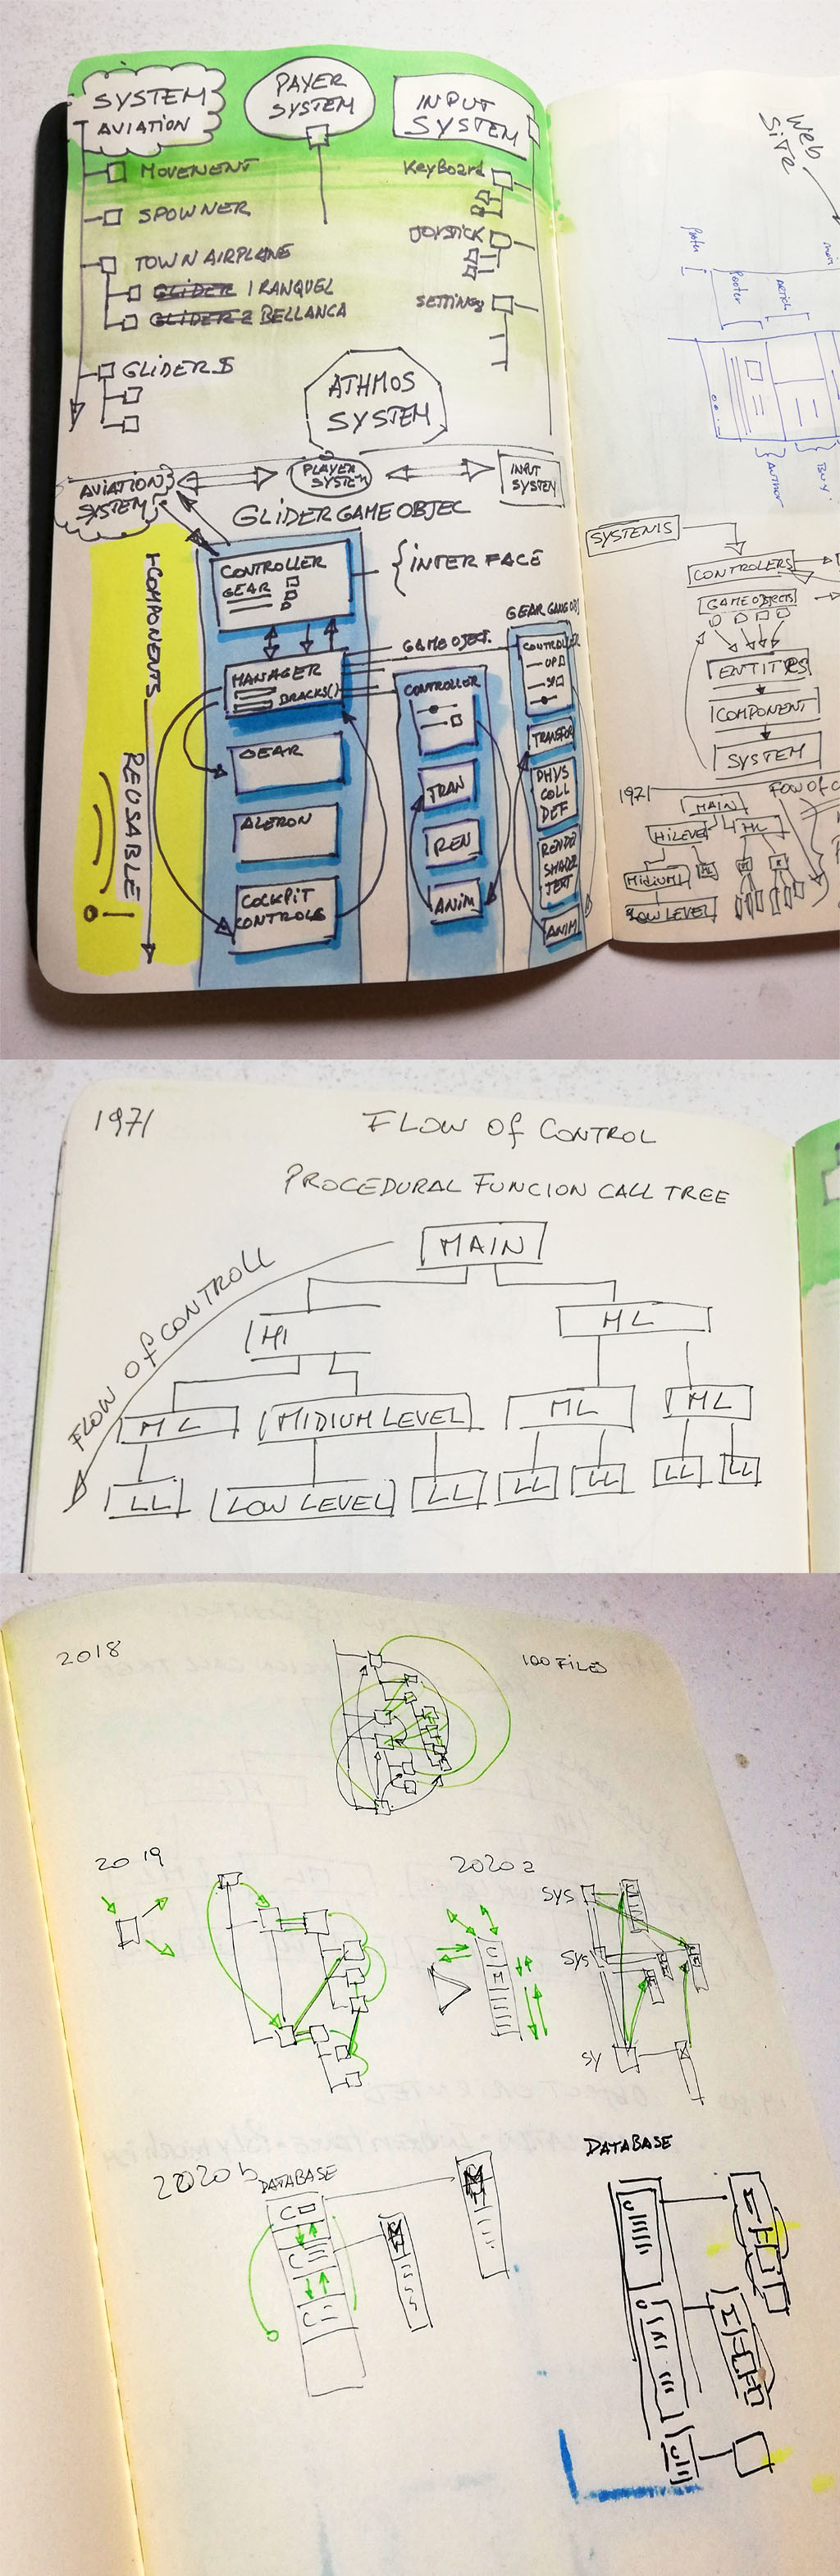 SYSTEM
AVIATION
PAYER
SYSTEM
INPUT
SYSTEM
MOVEMENT
SPOWNER
TOWN AIRPLANE
GLIDER 1 RANQUEL
GLIDER 2 BELLANCA
GLIDER$
KeyBoard
JOYSTICK
SETTING
ATHMOS
SYSTEM
AVIATION
SYSTEM
PLAYER
SYSTEM
INPUT
SYSTEM
GLIDER GAME OBJEC
CONTROLLER
GEAR
INTERFACE
COMPONENTS
REUSABLE
MANAGER
BRACKS()
GEAR
ALERON
COCKPIT
CONTROLS
GAME OBJECT.
CONTROLLER
TRAN
REN
ANIM
GEAR GAME OBJ
CONTROLLER
UP
PHYS
COLL
DEF
RENDER
SHADER
TEXT
ANIM
Web
SiTe
main
Footer
ARTICL
AUTHOR
BUY
SYSTEMS
CONTROLERS
GAME OBJECTS
ENTITIES
COMPONENT
SYSTEM
1971
MAIN
HILEVEL
ML
MIDIUML
LOW LEVEL
1971
FLOW Of CONTROL
PROCEDURAL FUNCION CALL TREE
FLOW Of CONTROLL
MAIN
HI
ML
ML
MIDIUM LEVEL
ML
ML
LL
LOW LEVEL
LL
LL
LL
LL
LL
2018
100 FILES
2019
2020 a
SYS
SYS
SY
C
M
2020 b
DATABASE
C
C
C
M
M
DATABASE